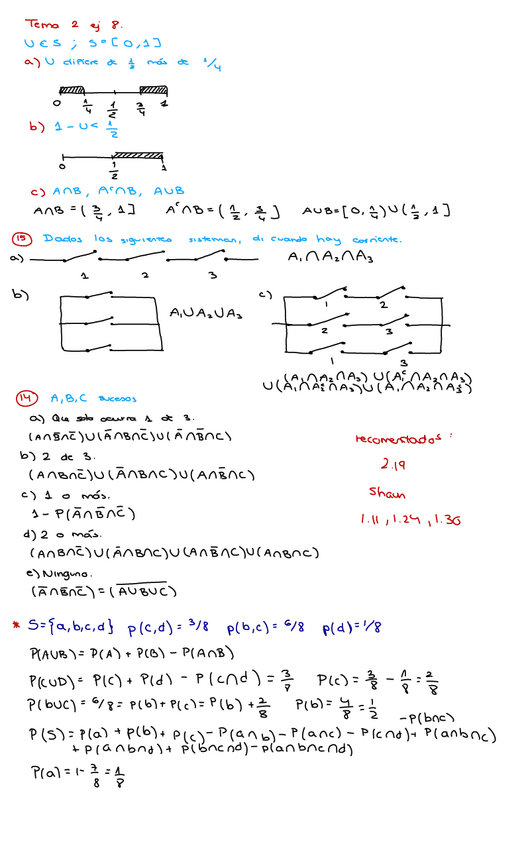 Tema 2 ej 8.
U ∈ S ; S = [0,1]
a) U difiere de 1/2 más de 1/4
0 1/4 1/2 3/4 1
b) 1 - U < 1/2
0 1/2 1
c) A∩B, Aᶜ∩B, A∪B
A∩B = (3/4, 1] Aᶜ∩B = (1/2, 3/4] A∪B = [0, 1/4) ∪ (1/2, 1]
15 Dados los siguientes sistemas, di cuando hay corriente.
a) 1 2 3 A₁∩A₂∩A₃
b) A₁∪A₂∪A₃
c) 1 2
2 3
1 3
(A₁∩A₂∩A₃) ∪ (A₁ᶜ∩A₂∩A₃)
∪(A₁∩A₂ᶜ∩A₃)∪(A₁∩A₂∩A₃ᶜ)
14 A, B, C sucesos
a) Que solo ocurra 1 de 3.
(A∩B̄∩C̄)∪(Ā∩B∩C̄)∪(Ā∩B̄∩C)
b) 2 de 3.
(A∩B∩C̄)∪(Ā∩B∩C)∪(A∩B̄∩C)
c) 1 o más.
1 - P(Ā∩B̄∩C̄)
d) 2 o más.
(A∩B∩C̄)∪(Ā∩B∩C)∪(A∩B̄∩C)∪(A∩B∩C)
e) Ninguno.
(Ā∩B̄∩C̄) = (A̅∪̅B̅∪̅C̅)
recomendados :
2.19
Shaun
1.11, 1.24, 1.36
* S={a,b,c,d} p(c,d) = 3/8 p(b,c) = 6/8 p(d) = 1/8
P(A∪B) = P(A) + P(B) - P(A∩B)
P(C∪D) = P(c) + P(d) - P(c∩d) = 3/8 P(c) = 3/8 - 1/8 = 2/8
P(b∪c) = 6/8 = P(b) + P(c) = P(b) + 2/8 P(b) = 4/8 = 1/2
-P(b∩c)
P(S) = P(a) + P(b) + P(c) - P(a∩b) - P(a∩c) - P(c∩d) + P(a∩b∩c)
+ P(a∩b∩d) + P(b∩c∩d) - p(a∩b∩c∩d)
P(a) = 1 - 7/8 = 1/8